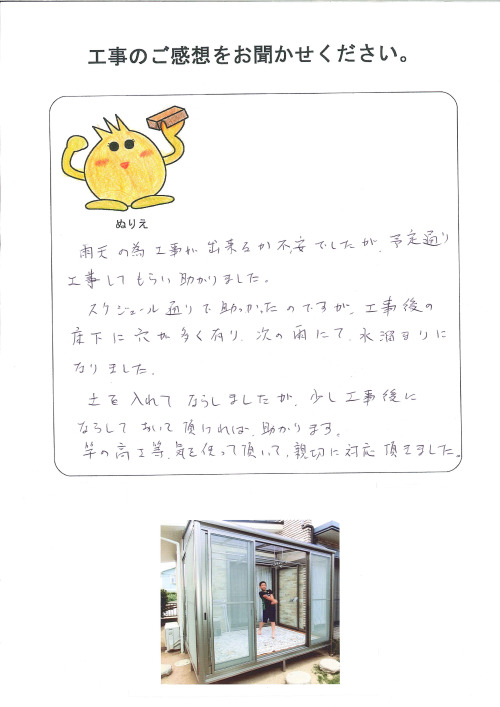 工事のご感想をお聞かせください。
ぬりえ
雨天の為工事が出来るか不安でしたが、予定通り
工事してもらい助かりました。
スケジュール通りで助かったのですが、工事後の
床下に穴が多く有り、次の雨にて、水溜まりに
なりました。
土を入れてならしましたが、少し工事後に
ならしておいて頂ければ、助かります。
竿の高さ等、気を使って頂いて、親切に対応頂きました。